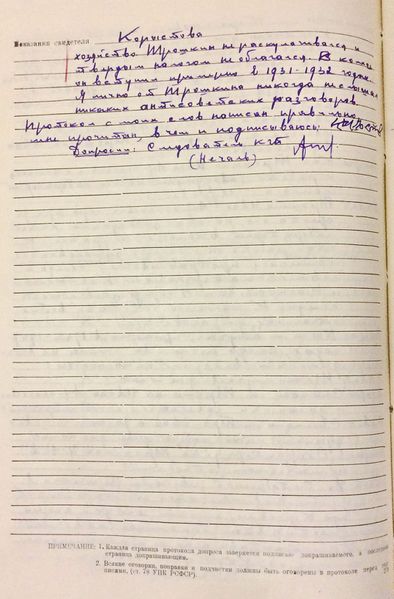 Показания свидетеля Корыстова
хозяйство Трошкин не раскулачивался и
твердым налогом не облагался. В колхоз
он вступил примерно в 1931-1932 годах.
Я лично от Трошкина никогда не слышал
никаких антисоветских разговоров.
Протокол с моих слов написан правильно,
мне прочитан, в чем и подписываюсь
Допросил: Следователь КГБ
ПРИМЕЧАНИЕ: 1. Каждая страница протокола допроса заверяется подписью допрашиваемого, а последняя
страница допрашивающим.
2. Всякие оговорки, поправки и подчистки должны быть оговорены в протоколе перед
писями. (ст. 78 УПК РСФСР).